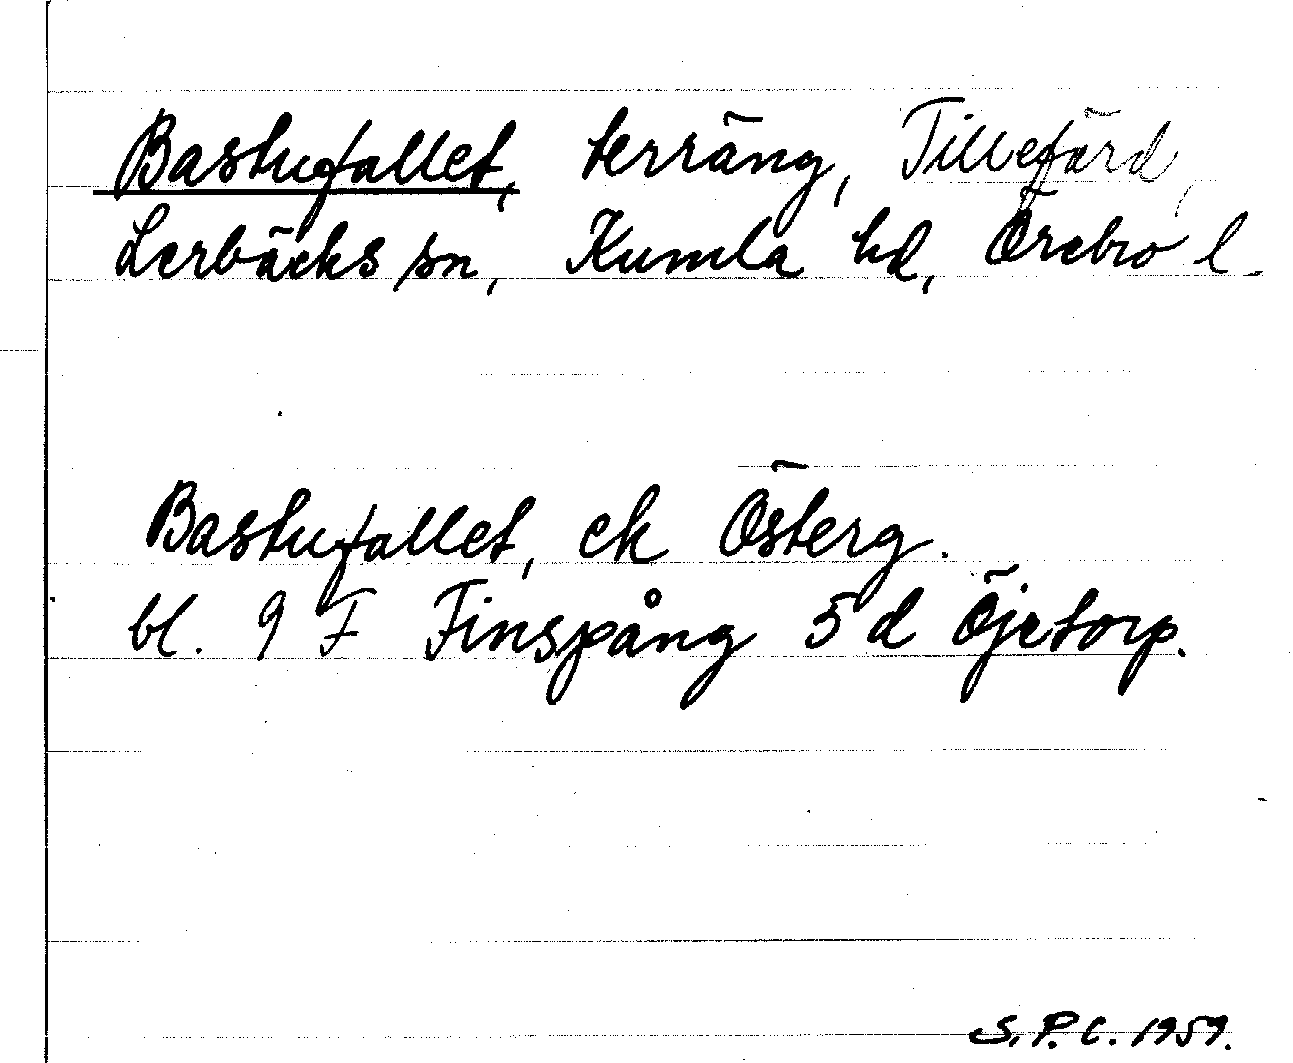 Bastufallet, terräng, Tillefärd,
Lerbäcks sn, Kumla hd, Örebro l.
Bastufallet, ek Österg.
bl. 9 F Finspång 5 d Öjetorp.
S.P.C. 1959.